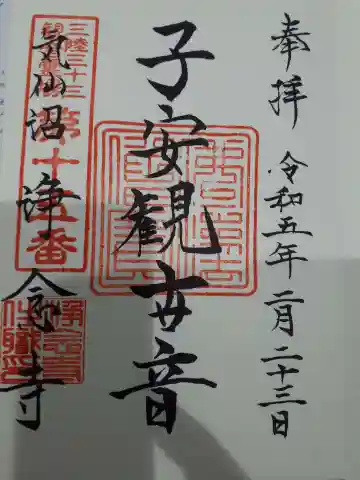 奉拝 令和五年二月二十三日
子安観世音
三陸三十三
観音霊場
第十五番
気仙沼 浄念寺